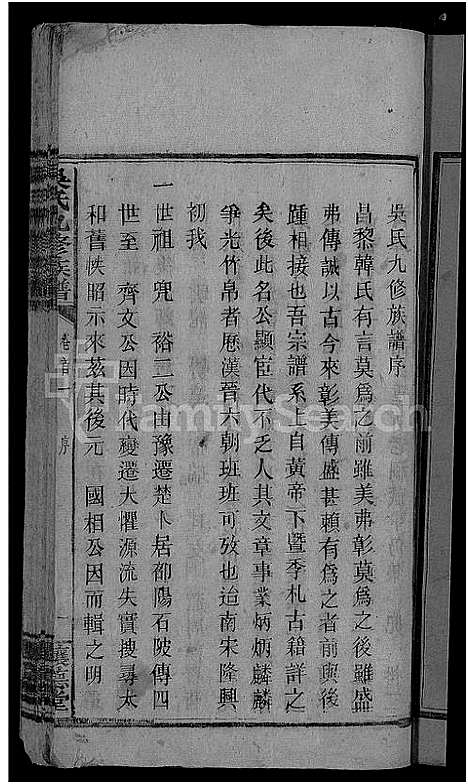 吳氏九修族譜序
昌黎韓氏有言莫爲之前雖美弗彰莫爲之後雖盛
弗傳誠以古今來彰美傳盛甚賴有爲之者前與後
踵相接也吾宗譜系上自黃帝下暨季札古籍詳之
矣後此名公顯宦代不乏人其文章事業炳炳麟麟
爭光竹帛者歷漢晉六朝班班可攷也迨南宋隆興
初我
一世祖 兕 裕二公由豫遷楚卜居邵陽石陂傳四
世至 齊文公因時代變遷大懼源流失實搜尋太
和舊帙昭示來茲其後元 國相公因而輯之明
吳氏九修族譜
卷首一
序
一
讓德堂
FamilySearch